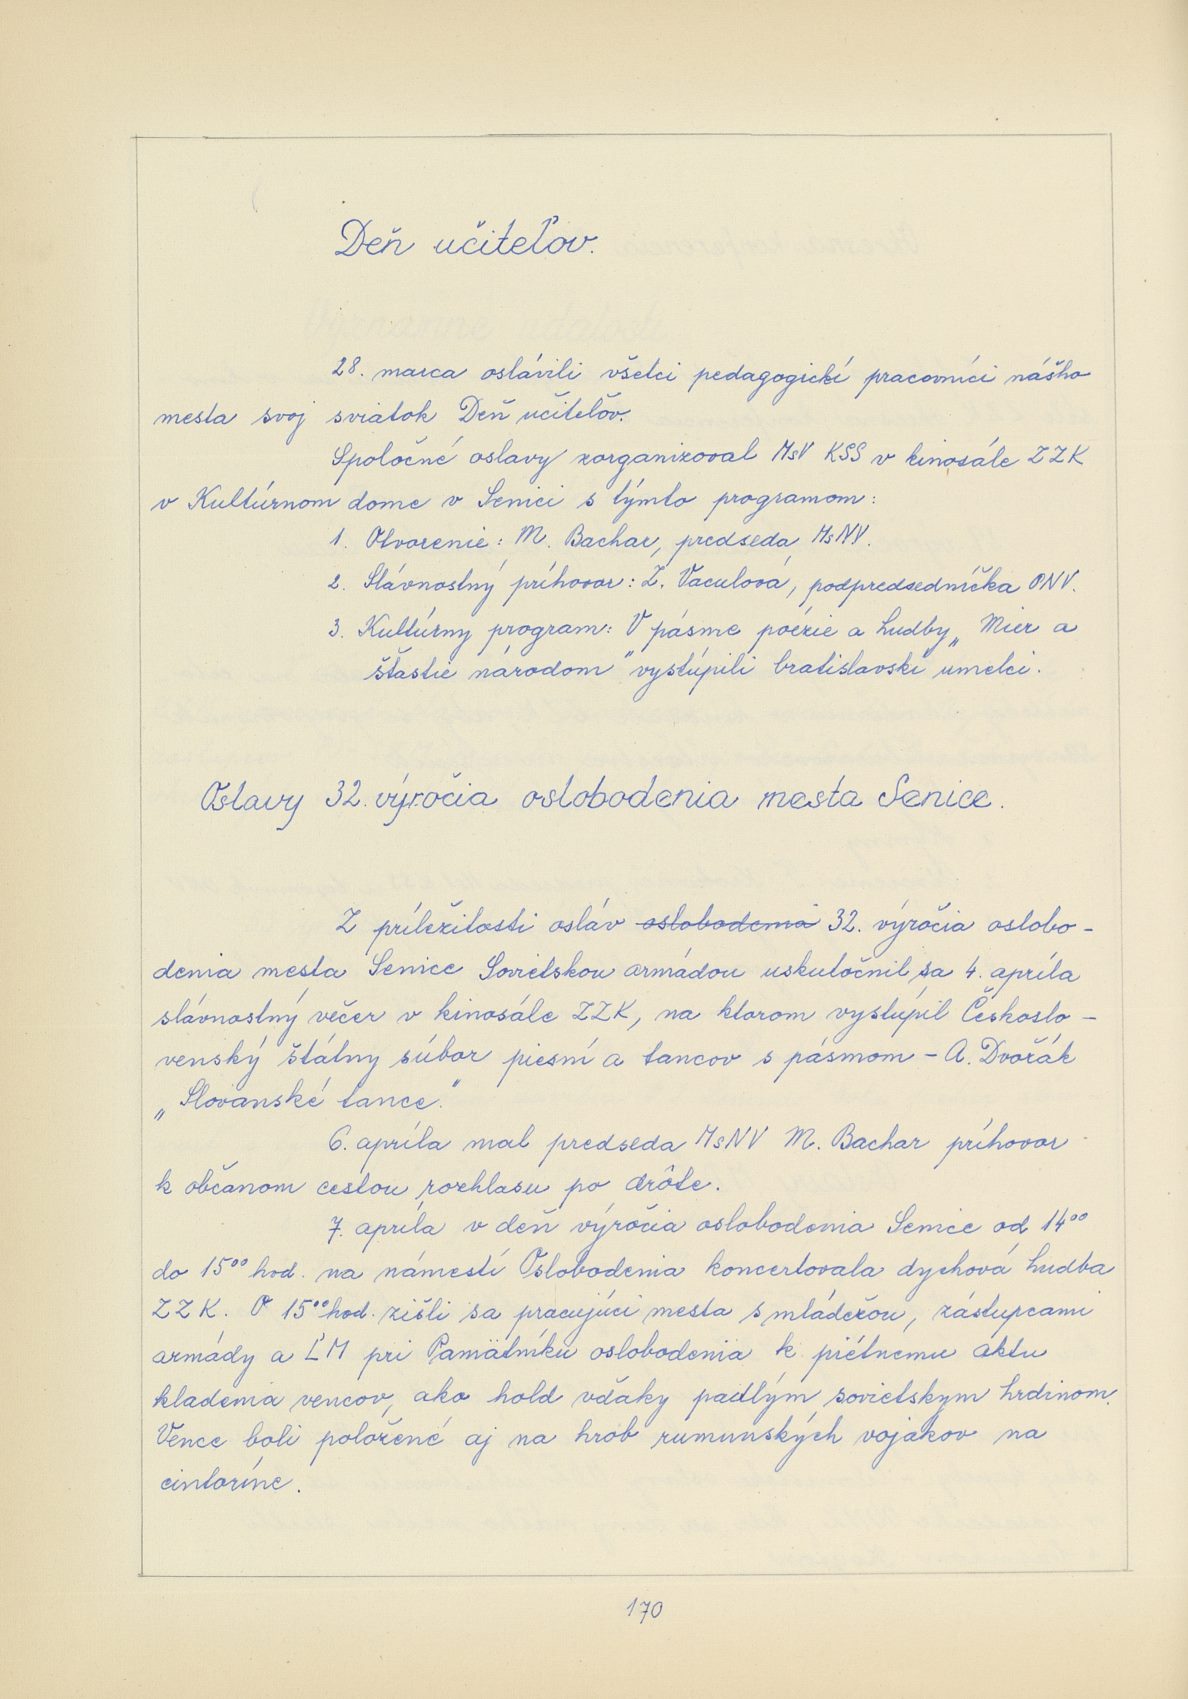 Deň učiteľov.
28. marca oslávili všetci pedagogickí pracovníci nášho
mesta svoj sviatok Deň učiteľov.
Spoločné oslavy zorganizoval MsV KSS v kinosále ZZK
v Kultúrnom dome v Senici s týmto programom:
1. Otvorenie: M. Bachar, predseda MsNV.
2. Slávnostný príhovor: Z. Vaculová, podpredsedníčka ONV.
3. Kultúrny program: V pásme poézie a hudby „Mier a
šťastie národom" vystúpili bratislavskí umelci.
Oslavy 32. výročia oslobodenia mesta Senice.
Z príležitosti osláv oslobodenia 32. výročia oslobo-
denia mesta Senice Sovietskou armádou uskutočnil sa 4. apríla
slávnostný večer v kinosále ZZK, na ktorom vystúpil Českoslo-
venský štátny súbor piesní a tancov s pásmom - A. Dvořák
„Slovanské tance."
6. apríla mal predseda MsNV M. Bachar príhovor
k občanom cestou rozhlasu po drôte.
7. apríla v deň výročia oslobodenia Senice od 14⁰⁰
do 15⁰⁰ hod. na námestí Oslobodenia koncertovala dychová hudba
ZZK. O 15⁰⁰ hod. zišli sa pracujúci mesta s mládežou, zástupcami
armády a ĽM pri Pamätníku oslobodenia k piétnemu aktu
kladenia vencov, ako hold vďaky padlým sovietskym hrdinom.
Vence boli položené aj na hrob rumunských vojakov na
cintoríne.
170